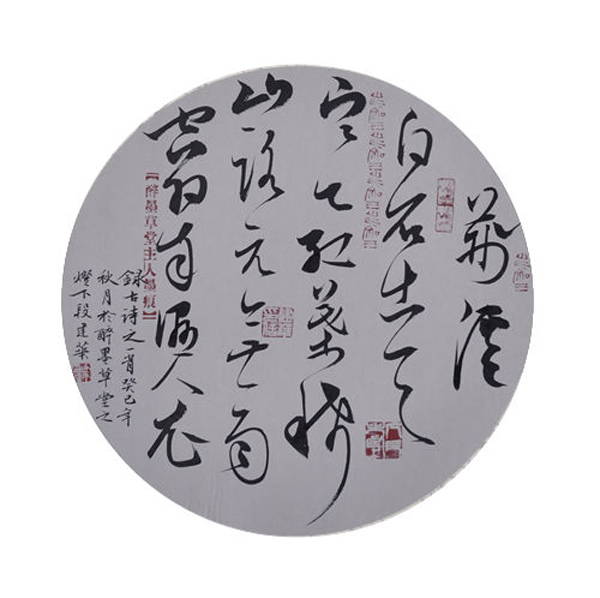 荆溪
白石出天
寒红葉稀
山路元無雨
空翠湿人衣
【醉墨草堂主人墨痕】
録古诗之一首癸巳年
秋月於醉墨草堂之
燈下段建華